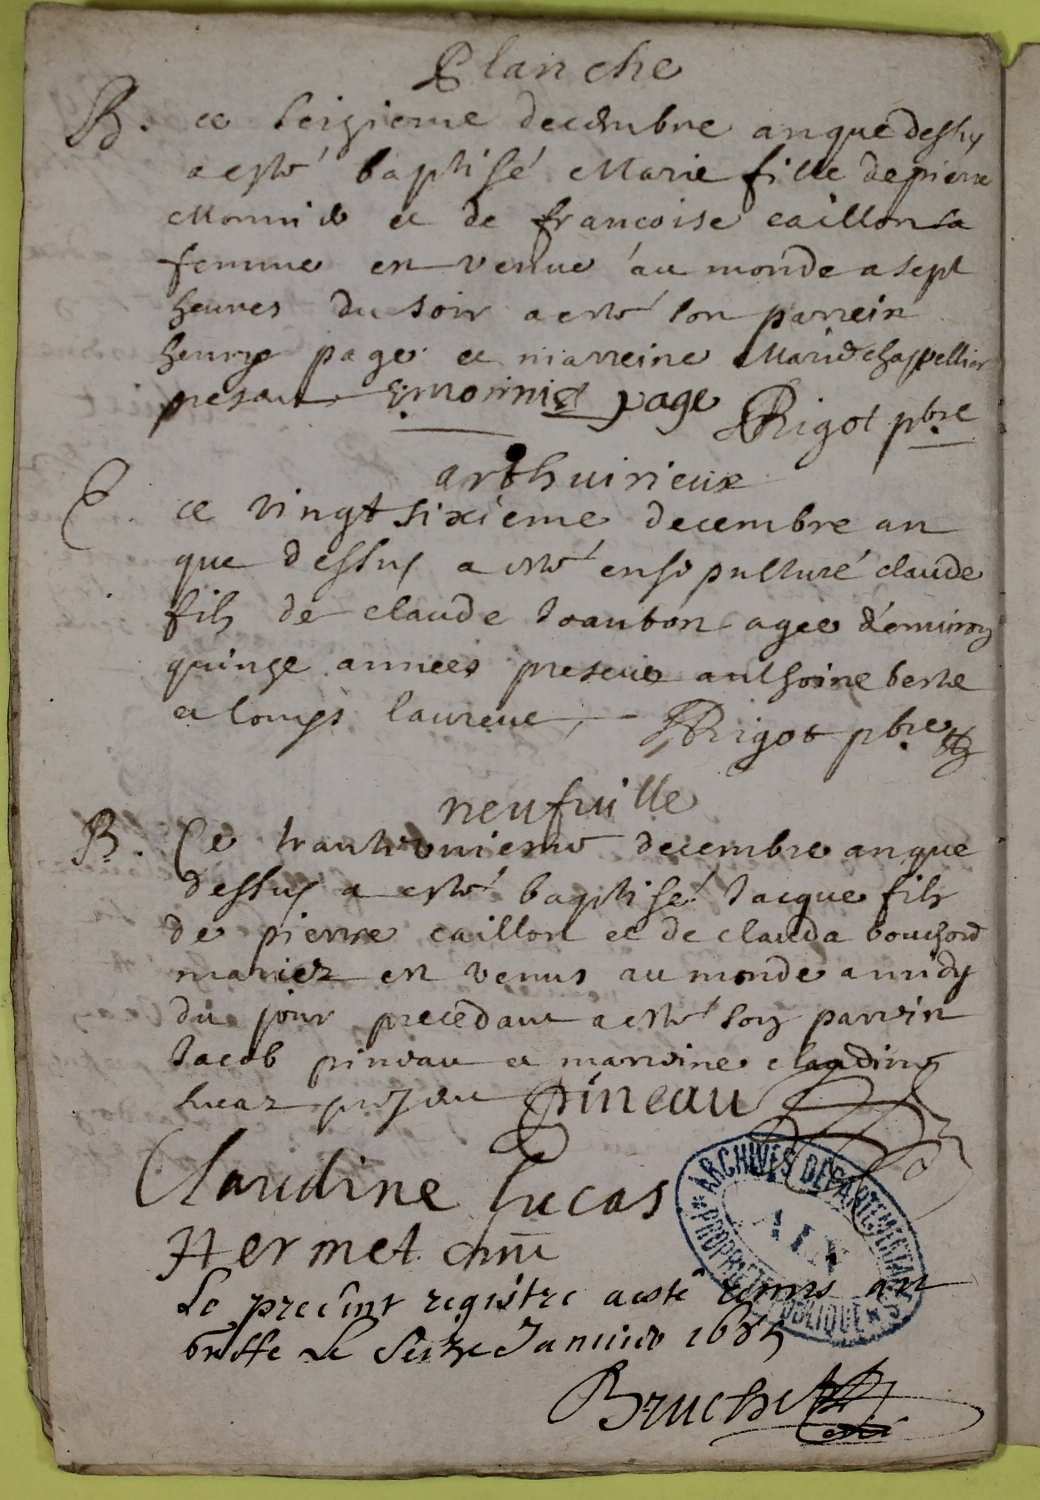 Planche
B. ce seizieme decembre an que dessus
a esté baptisé Marie fille de pierre
Monnié et de francoise caillon sa
femme en venue au monde a sept
heures du soir a esté son parrein
henry page et marreine Marie chappellier
presant monnié page JRigot pbre
arthuirieux
E. ce vingt sixieme decembre an
que dessus a esté ensepulturé claude
fils de claude agee d'enuiron
quinze annees presens anthoine berte
et Rigot pbre
neufuille
B. Ce trante unieme decembre an que
dessus a esté baptisé Jacque fils
de pierre caillon et de clauda bouchard
mariez en venus au monde a midy
du jour precedant a esté son parrein
Jacob pineau et marreine claudine
lucas pineau
Claudine Lucas
Hermet curé
Le present registre a esté remis au
Greffe Le Seize Januier 1685
Bruchet
ARCHIVES DEPARTEMENTALES
AIN
PROPRIETE PUBLIQUE